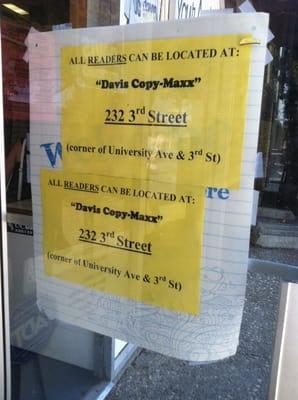 ALL READERS CAN BE LOCATED AT:
"Davis Copy-Maxx"
232 3rd Street
(corner of University Ave & 3rd St)
ALL READERS CAN BE LOCATED AT:
"Davis Copy-Maxx"
232 3rd Street
(corner of University Ave & 3rd St)